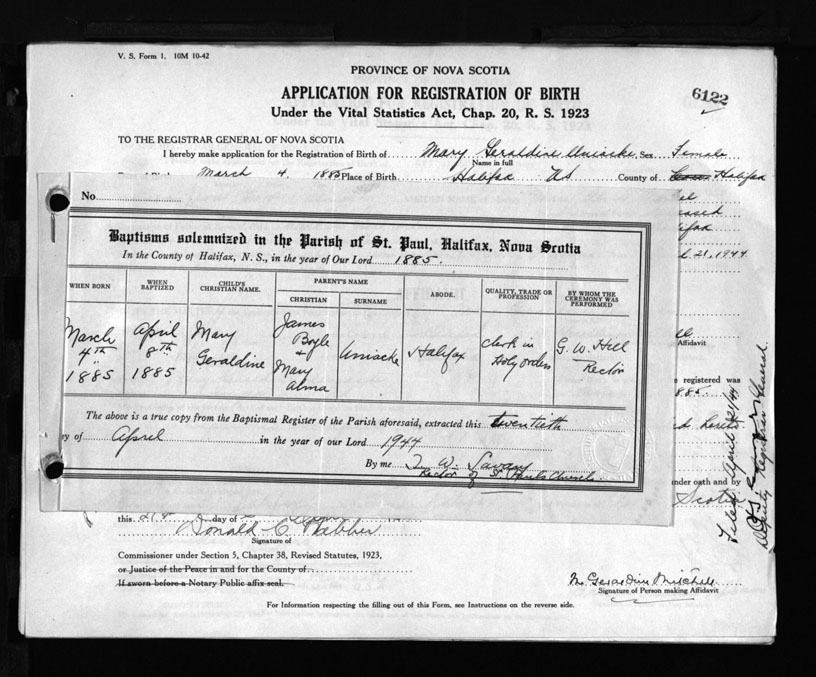 V. S. Form 1. 10M 10-42
PROVINCE OF NOVA SCOTIA
APPLICATION FOR REGISTRATION OF BIRTH
Under the Vital Statistics Act, Chap. 20, R. S. 1923
6122
TO THE REGISTRAR GENERAL OF NOVA SCOTIA
I hereby make application for the Registration of Birth of Mary Geraldine Uniacke Sex Female
Name in full
March 4. 1885 Place of Birth Halifax NS County of Halifax
No
Baptisms solemnized in the Parish of St. Paul, Halifax, Nova Scotia
In the County of Halifax, N. S., in the year of Our Lord 1885.
WHEN BORN WHEN BAPTIZED CHILD'S CHRISTIAN NAME. PARENT'S NAME CHRISTIAN SURNAME ABODE. QUALITY, TRADE OR PROFESSION BY WHOM THE CEREMONY WAS PERFORMED
March 4th 1885 April 8th 1885 Mary Geraldine James Boyle + Mary Alma Uniacke Halifax Clerk in Holy Orders G. W. Hill Rector
The above is a true copy from the Baptismal Register of the Parish aforesaid, extracted this twentieth
y of April in the year of our Lord 1944
By me T. W. Savary
Rector of St. Pauls Church
21, 1944
Affidavit
e registered was
885.
under oath and by
Scotia
Filed April
Deputy Registrar General.
this 21st day of
Donald C Webber
Signature of
Commissioner under Section 5, Chapter 38, Revised Statutes, 1923,
or Justice of the Peace in and for the County of
If sworn before a Notary Public affix seal.
M. Geraldine Mitchell
Signature of Person making Affidavit
For Information respecting the filling out of this Form, see Instructions on the reverse side.